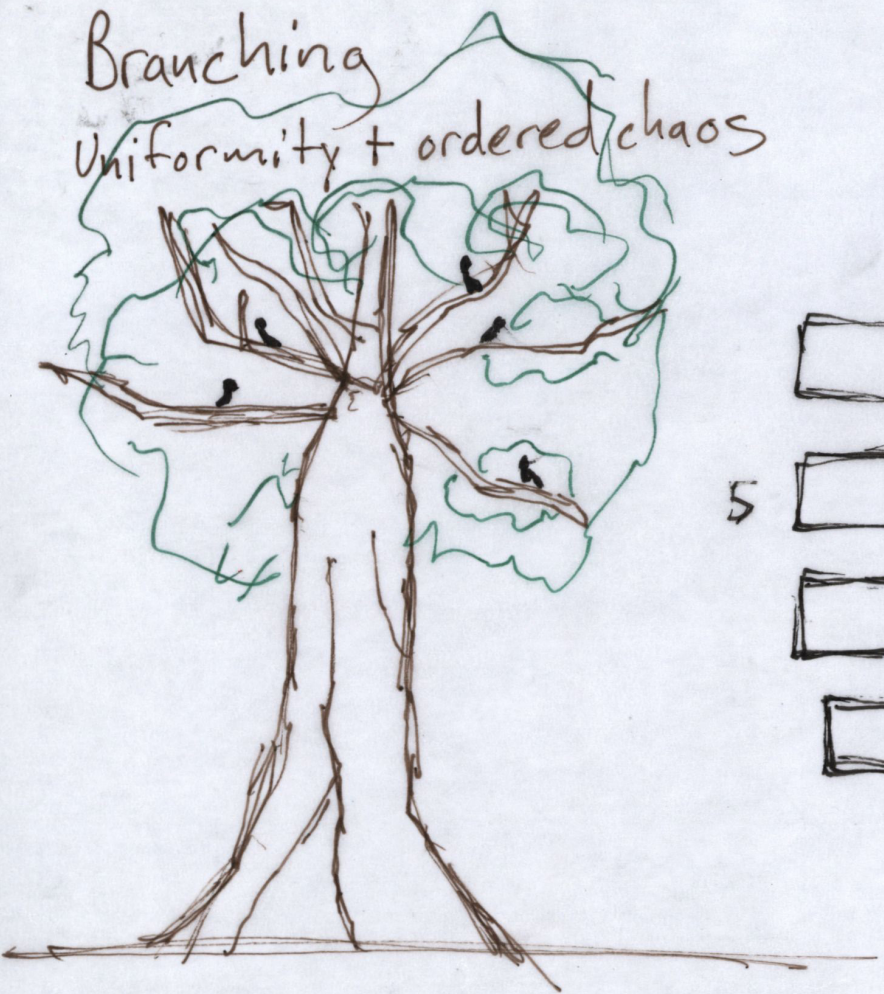 Branching
Uniformity + ordered chaos
5